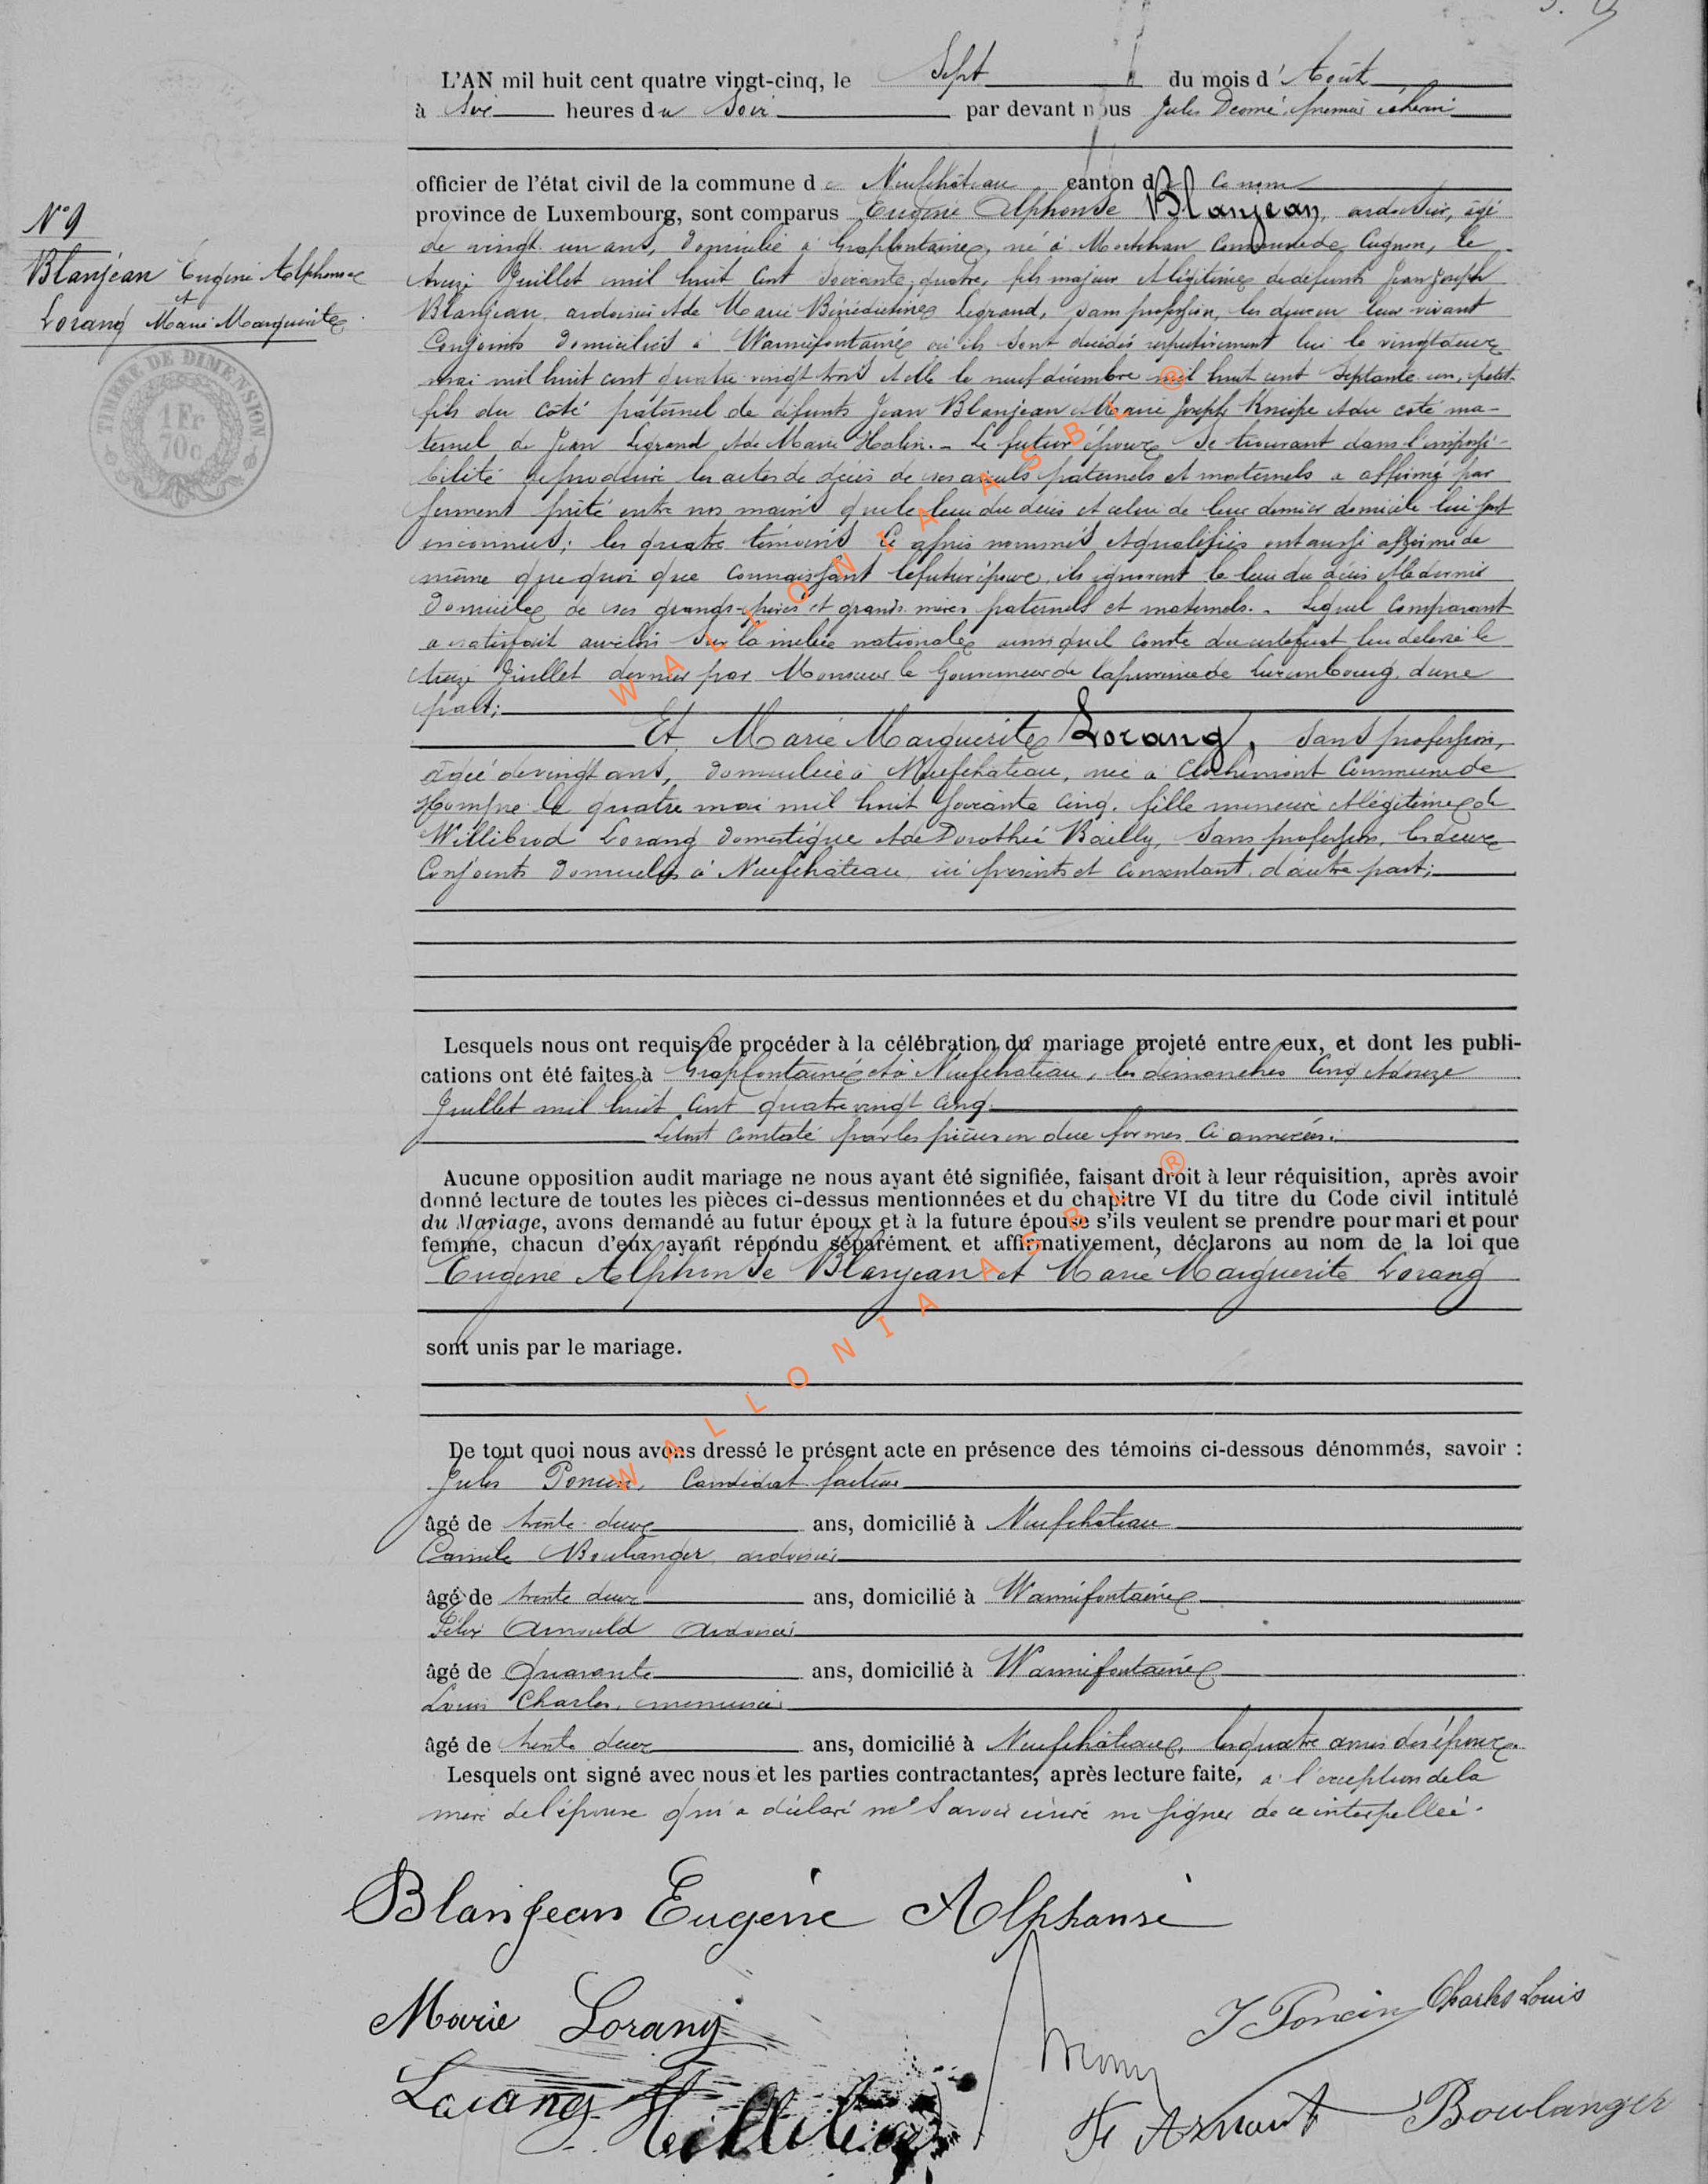 L'AN mil huit cent quatre vingt-cinq, le Sept du mois d'Août
à six heures du Soir par devant nous Jules Deome premier échevin
officier de l'état civil de la commune de Neufchâteau canton de Ce nom
province de Luxembourg, sont comparus Eugène Alphonse Blanjean, ardoisier, âgé
N° 9
Blanjean Eugène Alphonse
et
Lorang Marie Marguerite
TIMBRE DE DIMENSION
1 Fr
70c
de vingt un ans, domicilié à Grapfontaine, né à Mortehan Commune de Cugnon, le
treize Juillet mil huit cent soixante quatre, fils majeur et légitime de défunts Jean Joseph
Blanjean ardoisier et de Marie Bénédictine Legrand, sans profession, les deux en leur vivant
Conjoints domiciliés à Warmifontaine où ils sont décédés respectivement lui le vingt deux
mai mil huit cent quatre vingt trois et elle le neuf décembre mil huit cent septante un, petit-
fils du côté paternel de défunts Jean Blanjean et Marie Joseph Kneipe et du côté ma-
ternel de Jean Legrand et de Marie Holin. - Le futur époux se trouvant dans l'impossi-
bilité de produire les actes de décès de ses aïeuls paternels et maternels a affirmé par
serment prêté entre nos mains que le lieu du décès et celui de leur dernier domicile lui sont
inconnus; les quatre témoins Ci après nommés et qualifiés ont aussi affirmé de
même que quoi que Connaissant le futur époux, ils ignorent le lieu du décès et le dernier
domicile de ses grands-pères et grands mères paternels et maternels. - Lequel Comparant
a satisfait aux lois sur la milice nationale ainsi qu'il Conste du certificat lui délivré le
treize Juillet dernier par Monsieur le Gouverneur de la province de Luxembourg, d'une
part;
Et Marie Marguerite Lorang, sans profession,
âgée de vingt ans, domiciliée à Neufchateau, née à Clochimont Commune de
Hompré le quatre mai mil huit soixante cinq, fille mineure et légitime de
Willibrod Lorang domestique et de Dorothée Bailly, sans profession, les deux
Conjoints domiciliés à Neufchâteau, ici présents et Consentant, d'autre part;
Lesquels nous ont requis de procéder à la célébration du mariage projeté entre eux, et dont les publi-
cations ont été faites à Grapfontaine et à Neufchateau, les dimanches Cinq et douze
Juillet mil huit cent quatre vingt cinq
le tout Constaté par les pièces en due forme Ci annexées.
Aucune opposition audit mariage ne nous ayant été signifiée, faisant droit à leur réquisition, après avoir
donné lecture de toutes les pièces ci-dessus mentionnées et du chapitre VI du titre du Code civil intitulé
du Mariage, avons demandé au futur époux et à la future épouse s'ils veulent se prendre pour mari et pour
femme, chacun d'eux ayant répondu séparément et affirmativement, déclarons au nom de la loi que
Eugène Alphonse Blanjean et Marie Marguerite Lorang
sont unis par le mariage.
De tout quoi nous avons dressé le présent acte en présence des témoins ci-dessous dénommés, savoir :
Jules Poncin, Candidat facteur
âgé de trente deux ans, domicilié à Neufchateau
Camile Boulanger ardoisier
âgé de trente deux ans, domicilié à Warmifontaine
Félix Arnould ardoisier
âgé de Quarante ans, domicilié à Warmifontaine
Louis Charles, menuisier
âgé de trente deux ans, domicilié à Neufchâteau, les quatre amis des époux.
Lesquels ont signé avec nous et les parties contractantes, après lecture faite, à l'exception de la
mère de l'épouse qui a déclaré ne savoir écrire ni signer de ce interpellée.
Blanjean Eugène Alphonse
Marie Lorang
J Poncin Charles Louis
Lorang Willibrod
F Arnout Boulanger
WALLONIA ASBL ®
WALLONIA ASBL ®